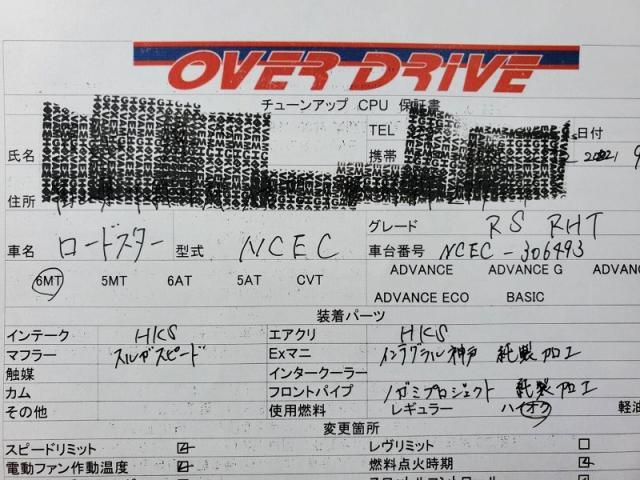 OVER DRIVE
チューンアップ CPU 保証書
氏名 TEL 日付
携帯 2021 9
住所
車名 ロードスター 型式 NCEC グレード RS RHT
車台番号 NCEC-306493
6MT 5MT 6AT 5AT CVT ADVANCE ADVANCE G ADVAN
ADVANCE ECO BASIC
装着パーツ
インテーク HKS エアクリ HKS
マフラー スルガスピード Exマニ インテグラル神戸 純製加工
触媒 インタークーラー
カム フロントパイプ ノガミプロジェクト 純製加工
その他 使用燃料 レギュラー ハイオク 軽油
変更箇所
スピードリミット レヴリミット
電動ファン作動温度 燃料点火時期
スロットルコントロール